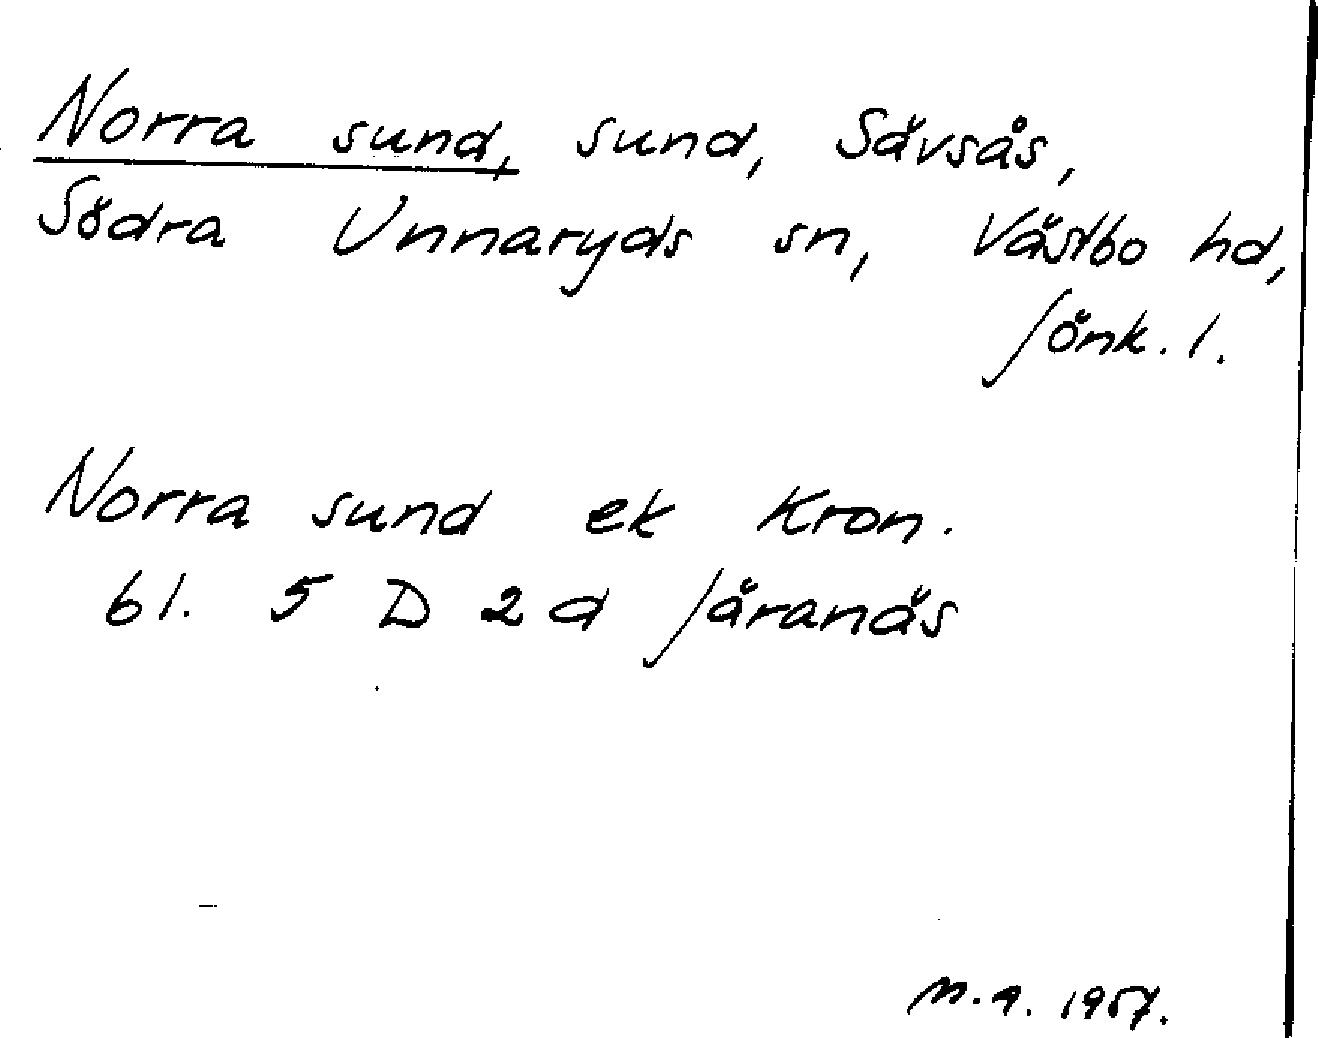 Norra sund, sund, Sävsås,
Södra Unnaryds sn, Västbo hd,
Jönk. l.
Norra sund ek Kron.
bl. 5 D 2 d Järanäs
M.A. 1957.